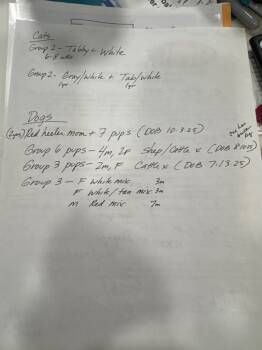 Cats
Group 2 - Tabby + White
6-8 wks
Group 2 - Gray/white + Tab/white
1yr 1yr
Dogs
(2yrs) Red heeler mom + 7 pups (DOB 10.8.25)
Group 6 pups - 4m, 2F Shep/Cattle x (DOB
Group 3 pups - 2m, F Cattle x (DOB 7.13.25)
Group 3 - F White mix 3m
F White/tan mix 3m
M Red mix 7m